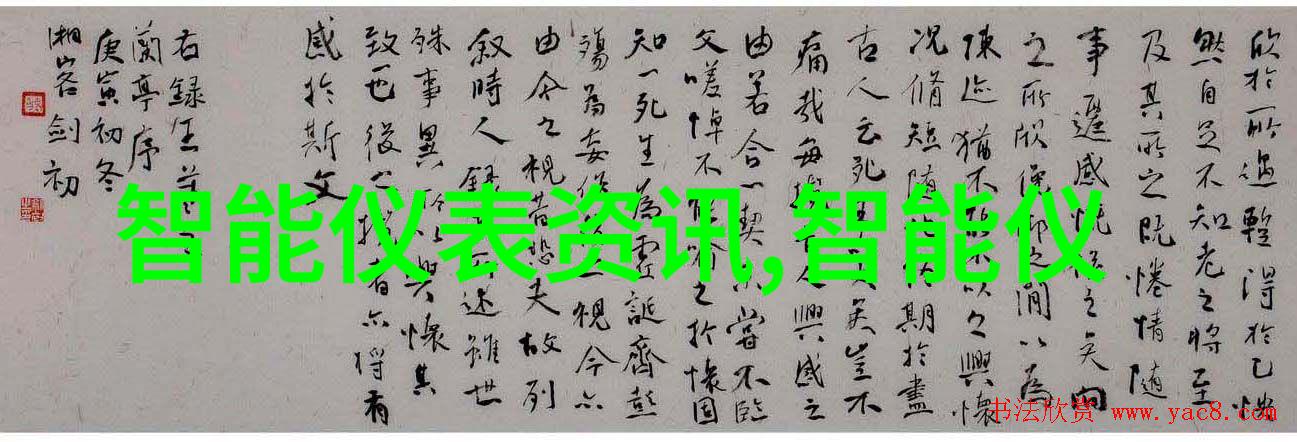 欣於所遇輒得於己怏
然自足不知老之將至
及其所之既惓情隨
事遷感慨係之矣向
之所欣俛仰之間以為
陳迹猶不能不以之興懷
況脩短随化終期於盡
古人云死生亦大矣豈不
痛哉每攬昔人興感之
由若合一契未嘗不臨
文嗟悼不能喻之於懷固
知一死生為虛誕齊彭
殤為妄作後之視今亦
由今之視昔悲夫故列
叙時人錄其所述雖世
殊事異所以興懷其
致一也後之攬者亦將有
感於斯文
右録王羲之
蘭亭序
庚寅初冬
湘客劍初
智能仪表资讯,智能仪
书法欣赏 www.yac8.com